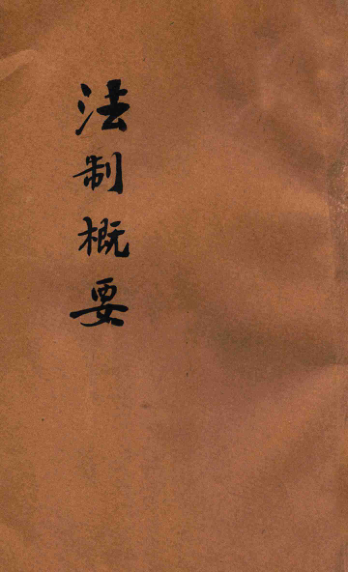 法制概要